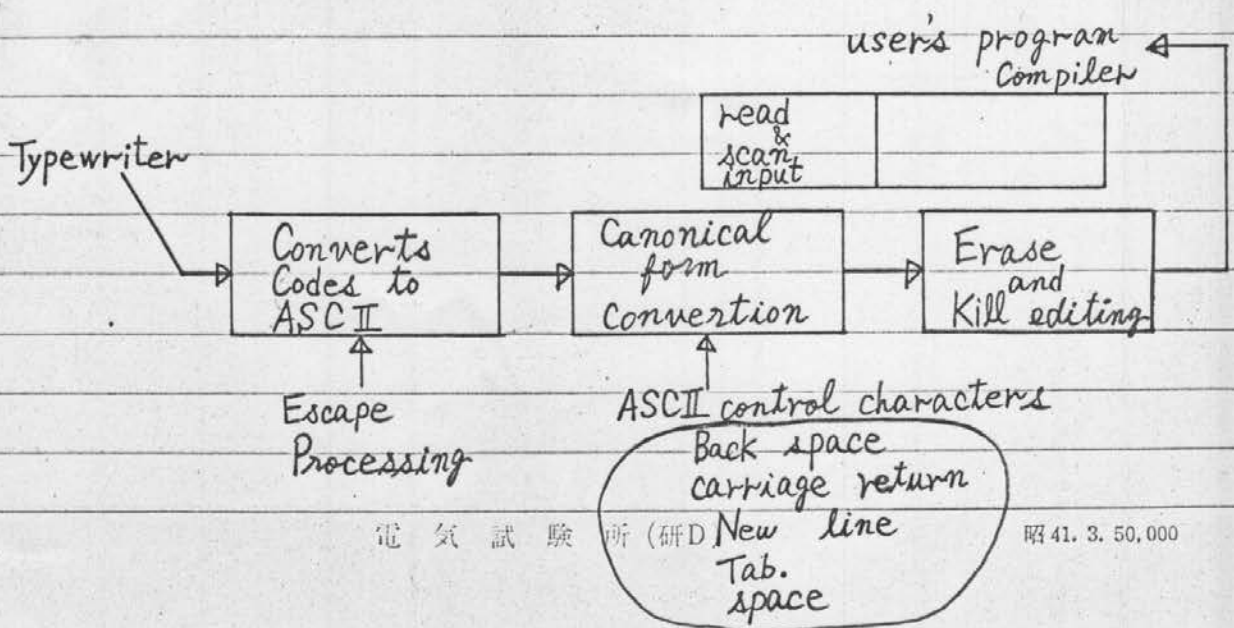 user's program
Compiler
read
&
scan
input
Typewriter
Converts
Codes to
ASCII
Canonical
form
Convertion
Erase
and
Kill editing
Escape
Processing
ASCII control characters
Back space
carriage return
New line
Tab.
space
電気試験所(研D
昭41. 3. 50,000